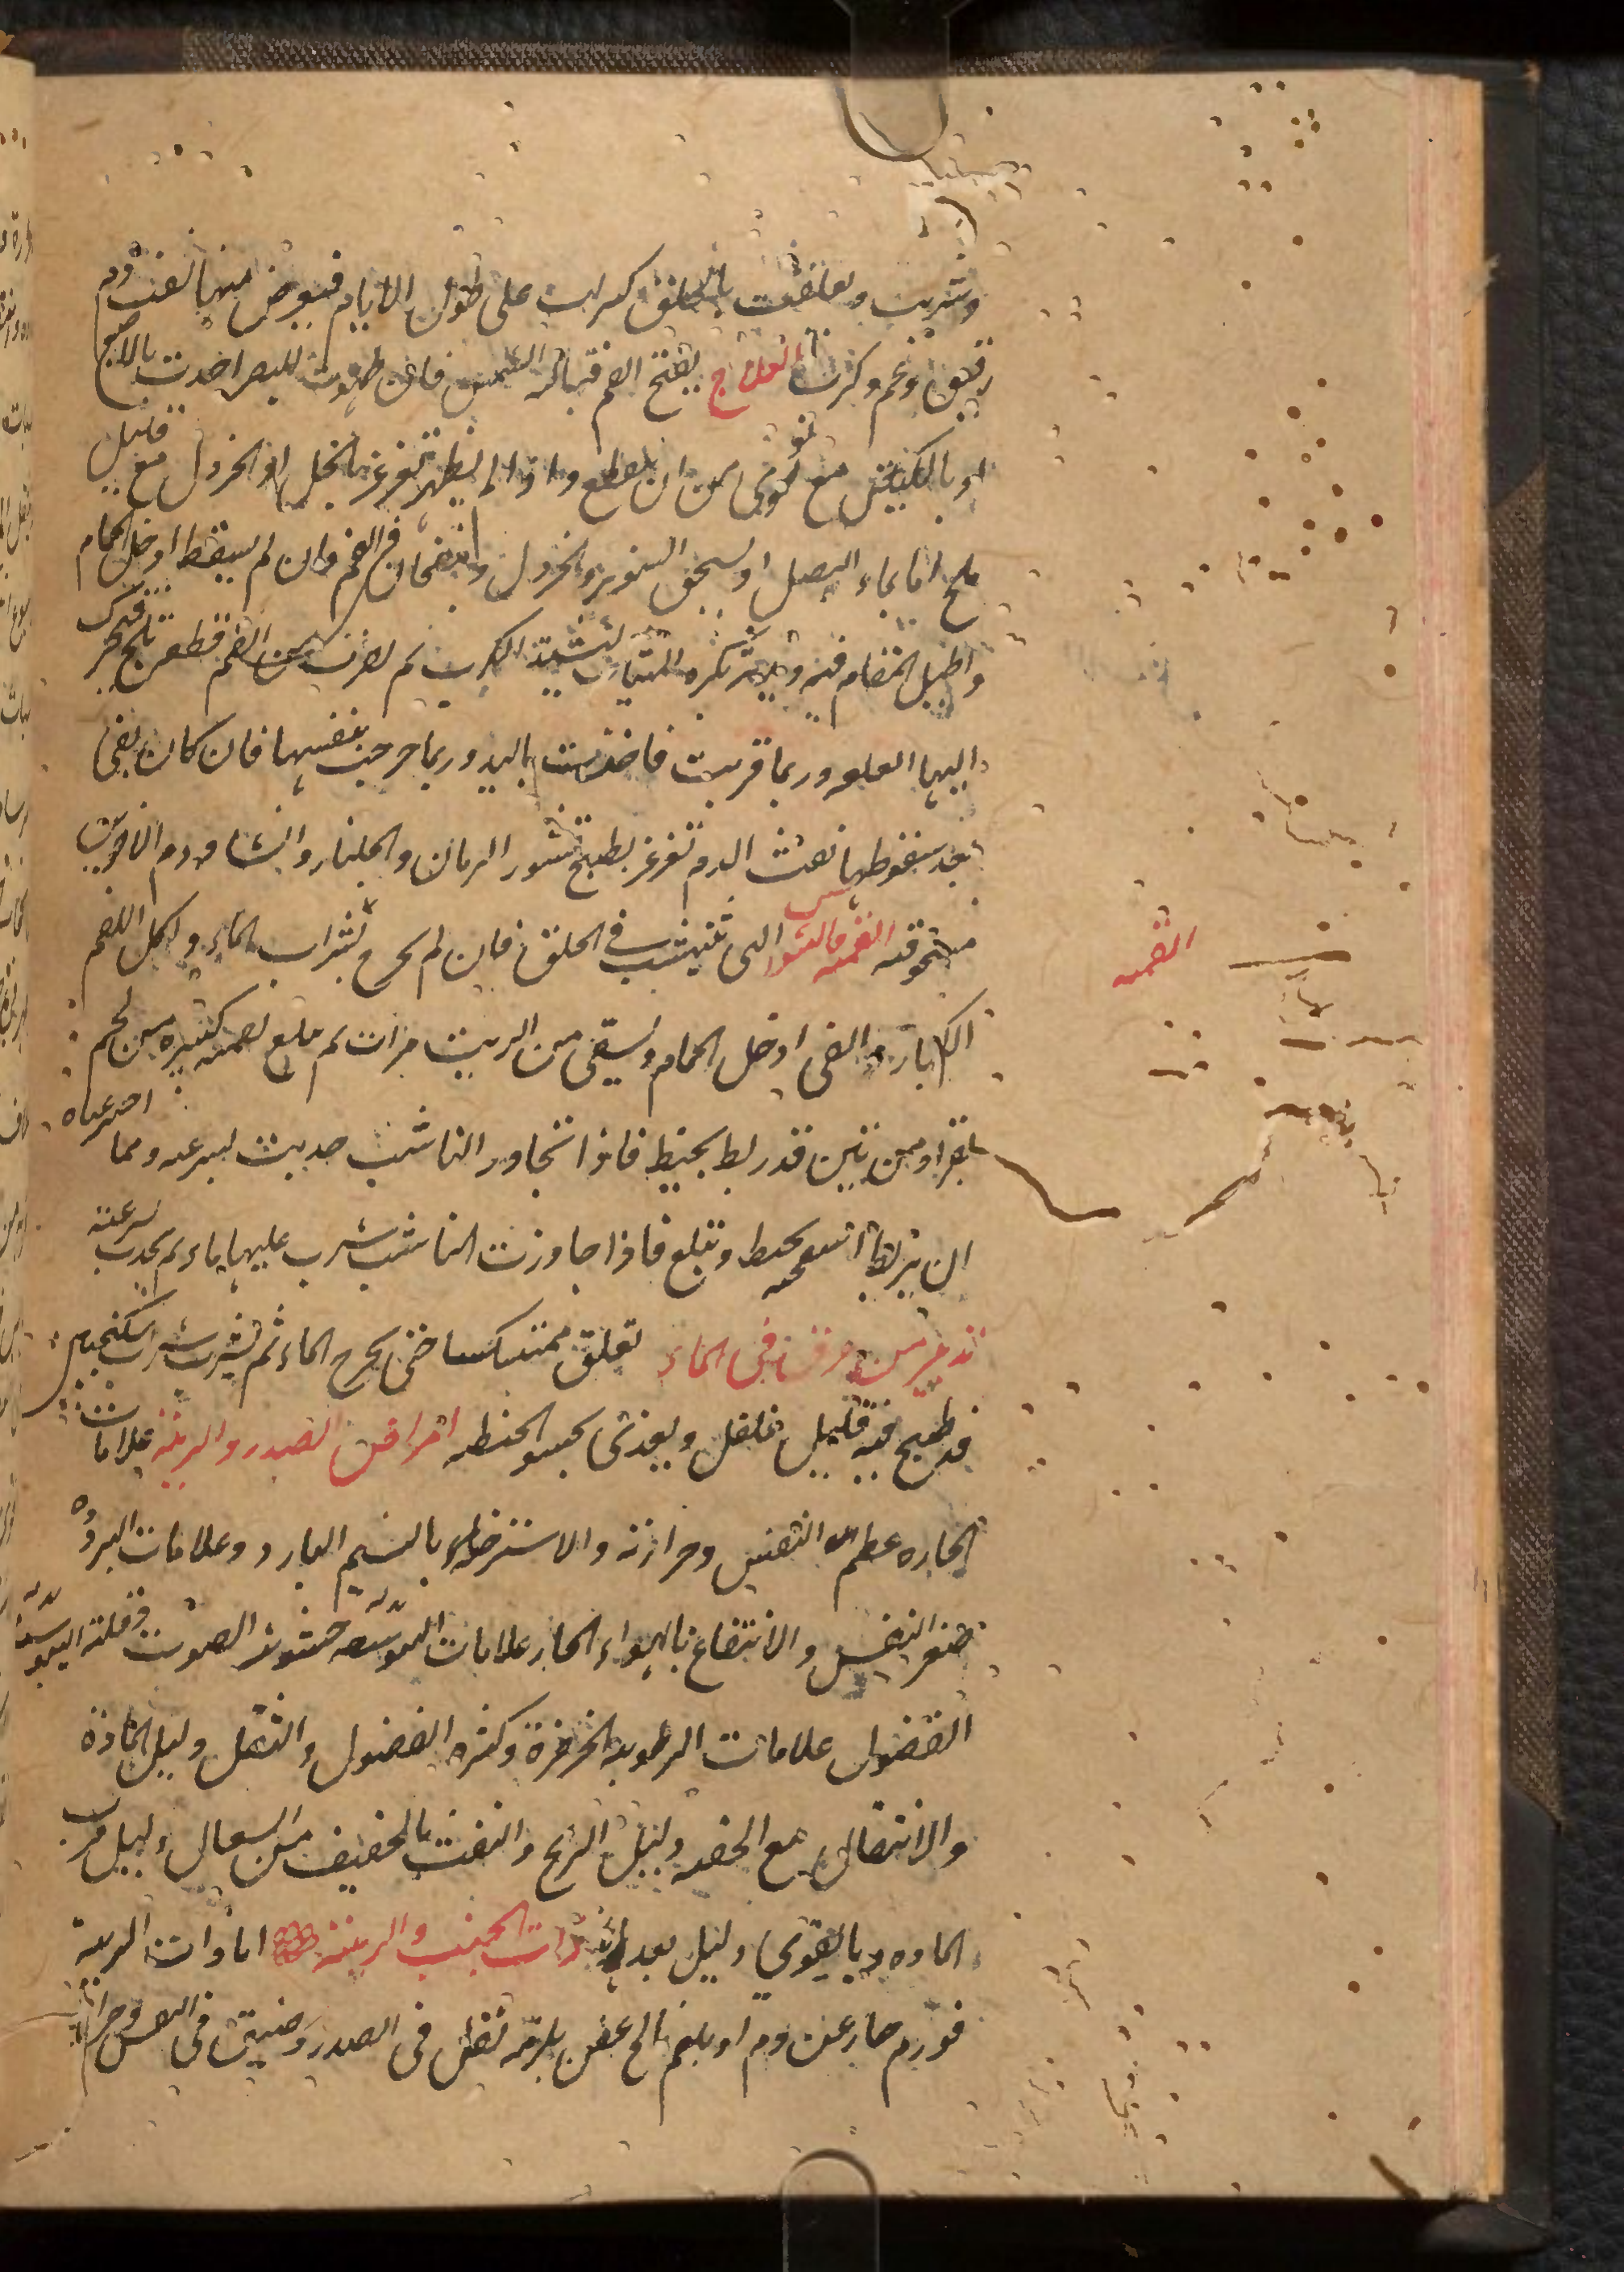 وشربت وتعلقت بالحلق كبرت على طول الايام فيعرض منها نفث دم
رقيق وغم وكرب العلاج يفتح الفم قبالة الشمس فان ظهرت للبصر اخذت بالاصبع
او بالكلبتين مع توقى من ان تنقطع واذا لم يظهر تغرغر بالخل او الخردل مع قليل
ملح اما بماء البصل او يسحق الشونيز والخردل وينفخان فى الفم وان لم يسقط ادخل الحمام
واطيل المقام فيه ثم من الفم قطعة ثلج فتتحرك
اليها العلقه وربما قربت فاخذت باليد وربما خرجت بنفسها فان كان بقى
بعد سقوطها نفث الدم تغرغر بطبيخ قشور الرمان والجلنار والنشا ودم الاخوين
مسحوقه اللقمه والشوك التى تنشب فى الحلق فان لم يخرج بشراب الماء واكل اللقم
اللقمه
الكبار والقى ادخل الحمام وسقى من الزيت مرات ثم بلع لقمه كبيره من لحم
بقر او من تين قد ربط بخيط فاذا تجاوز الناشب جذبت بسرعه ومما احترعناه
ان يربط اسفنجه بخيط وتبلع فاذا جاوزت الناشب شرب عليها ماء ثم تجذب بسرعته
تدبير من غرق فى الماء تعلق منتكسا حتى يخرج الماء ثم يشرب شراب سكنجبين
قد طبخ فيه قليل فلفل ويغذى بحسو الحنطه امراض الصدر والريئة علامات
الحاره عظم التنفس وحرارته والاستراحه بالنسيم البارد وعلامات البروده
صغر النفس والانتفاع بالهواء الحار علامات اليبوسه خشونة الصوت وقلة
الفضول علامات الرطوبه الخرخرة وكثره الفضول والثقل دليل المادة
والانتقال مع الخفه دليل الريح والنفث بالخفيف من السعال دليل قرب
الماده وبالقوى دليل بعدها ذات الجنب والريئة اما ذات الريه
فورم حار عن دم او بلغم مالح عفن يلزمه ثقل فى الصدر وضيق فى النفس وحرارة